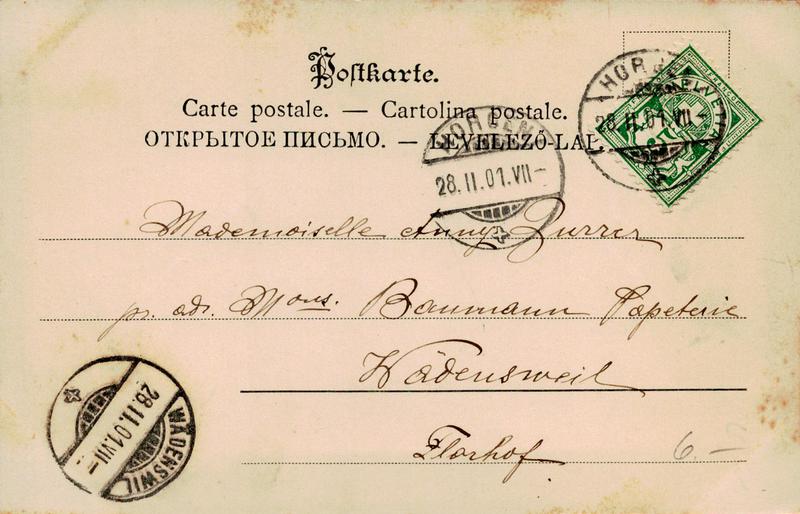 Postkarte.
Carte postale. — Cartolina postale.
ОТКРЫТОЕ ПИСЬМО. — LEVELEZŐ-LAP.
HORGEN
28.II.01.VII–
HORGEN
28.II.01.VII–
HELVETIA
Mademoiselle Anny Zurrer
pr. adr. Mons. Baumann Papeterie
Wädensweil
Florhof
6.–
WÄDENSWIL
28.II.01.VII–